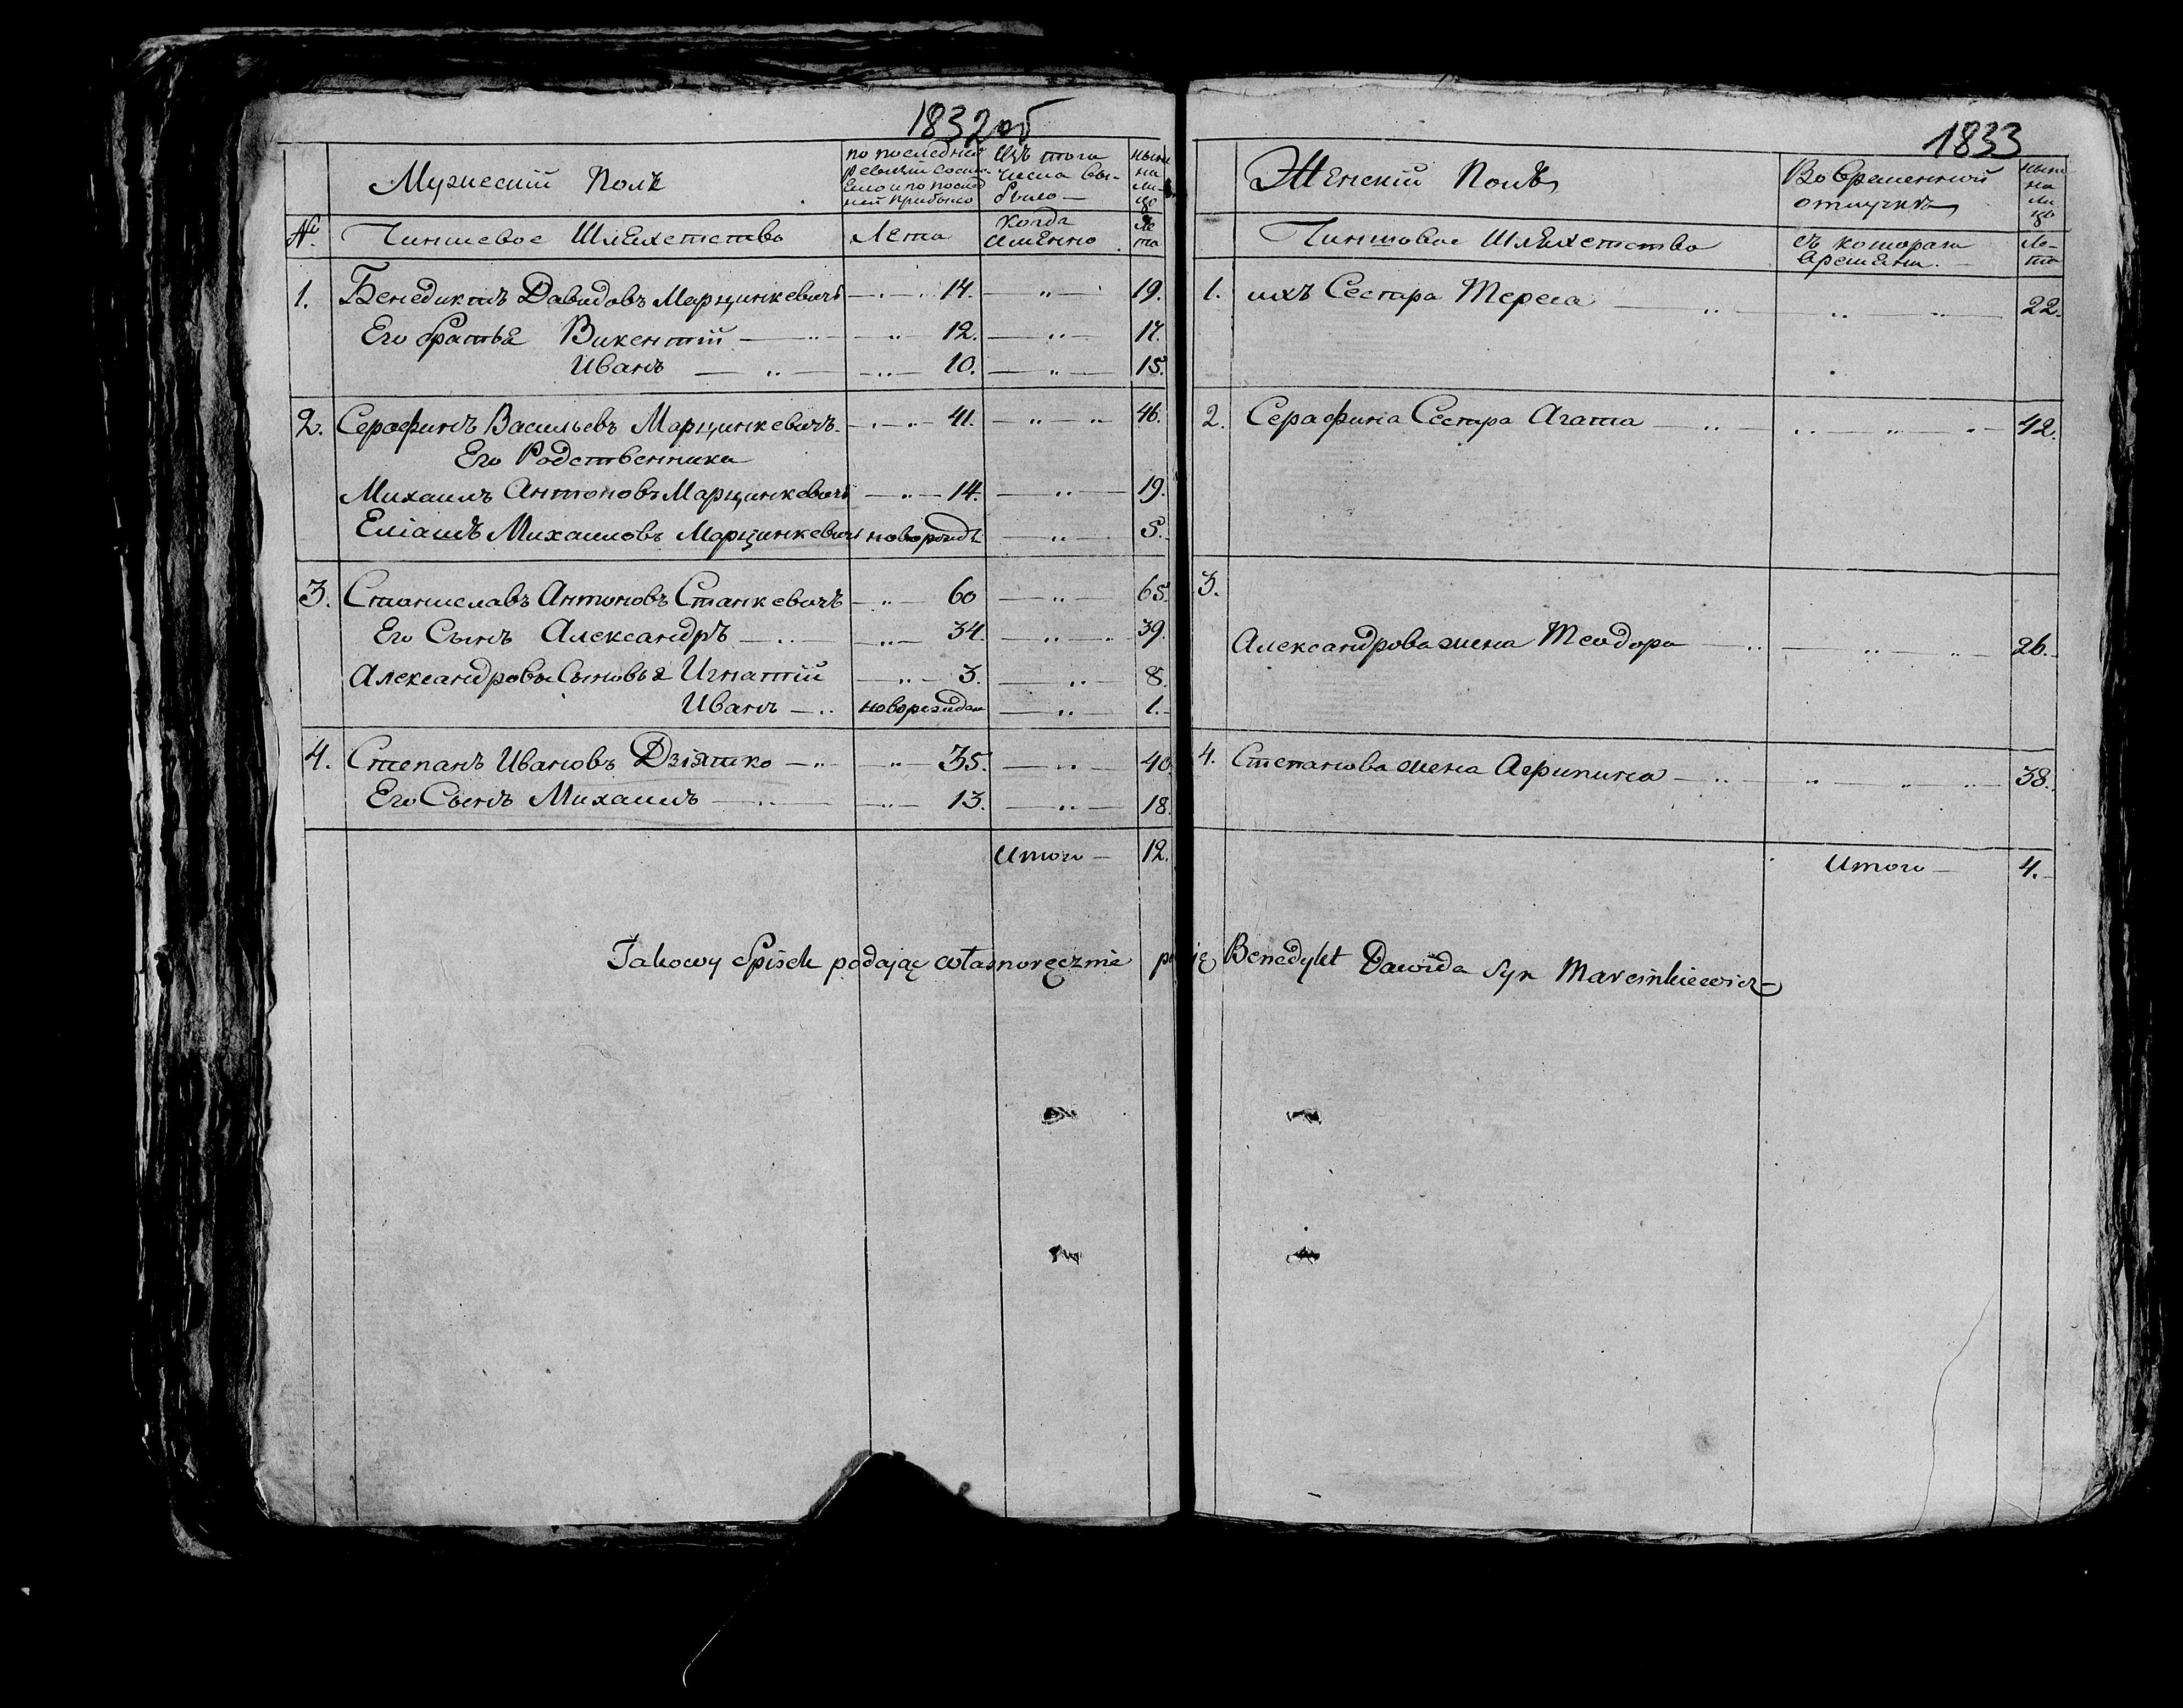 1832об
Мужескій Полъ
по последней ревизіи состояло и по последней прибыло
Изъ того числа выбыло
ныне на лицо
№
Чиншевое Шляхетство
Лета
Когда именно
Лета
1. Бенедиктъ Давидовъ Марцинкевичъ 14. 19.
Его братья Викентій 12. 17.
Иванъ 10. 15.
2. Серафинъ Васильевъ Марцинкевичъ 41. 46.
Его Родственники
Михаилъ Антоновъ Марцинкевичъ 14. 19.
Еліашъ Михаиловъ Марцинкевичъ 5.
3. Станиславъ Антоновъ Станкевичъ 60 65.
Его Сынъ Александръ 34. 39.
Александровы Сыновья Игнатій 3. 8.
Иванъ 1.
4. Степанъ Ивановъ Дзiятко 35. 40.
Его Сынъ Михаилъ 13. 18.
Итого 12.
Takowy Spisek podając własnoręcznie
1833
Женскій Полъ
Во временной отлучке
ныне на лицо
Чиншовое Шляхетство
съ котораго времени
Лета
1. ихъ Сестра Тереса 22.
2. Серафина Сестра Агата 42.
3.
Александрова жена Теодора 26.
4. Степанова жена Агрипина 38.
Итого 4.
Benedykt Dawida Syn Marcinkiewicz